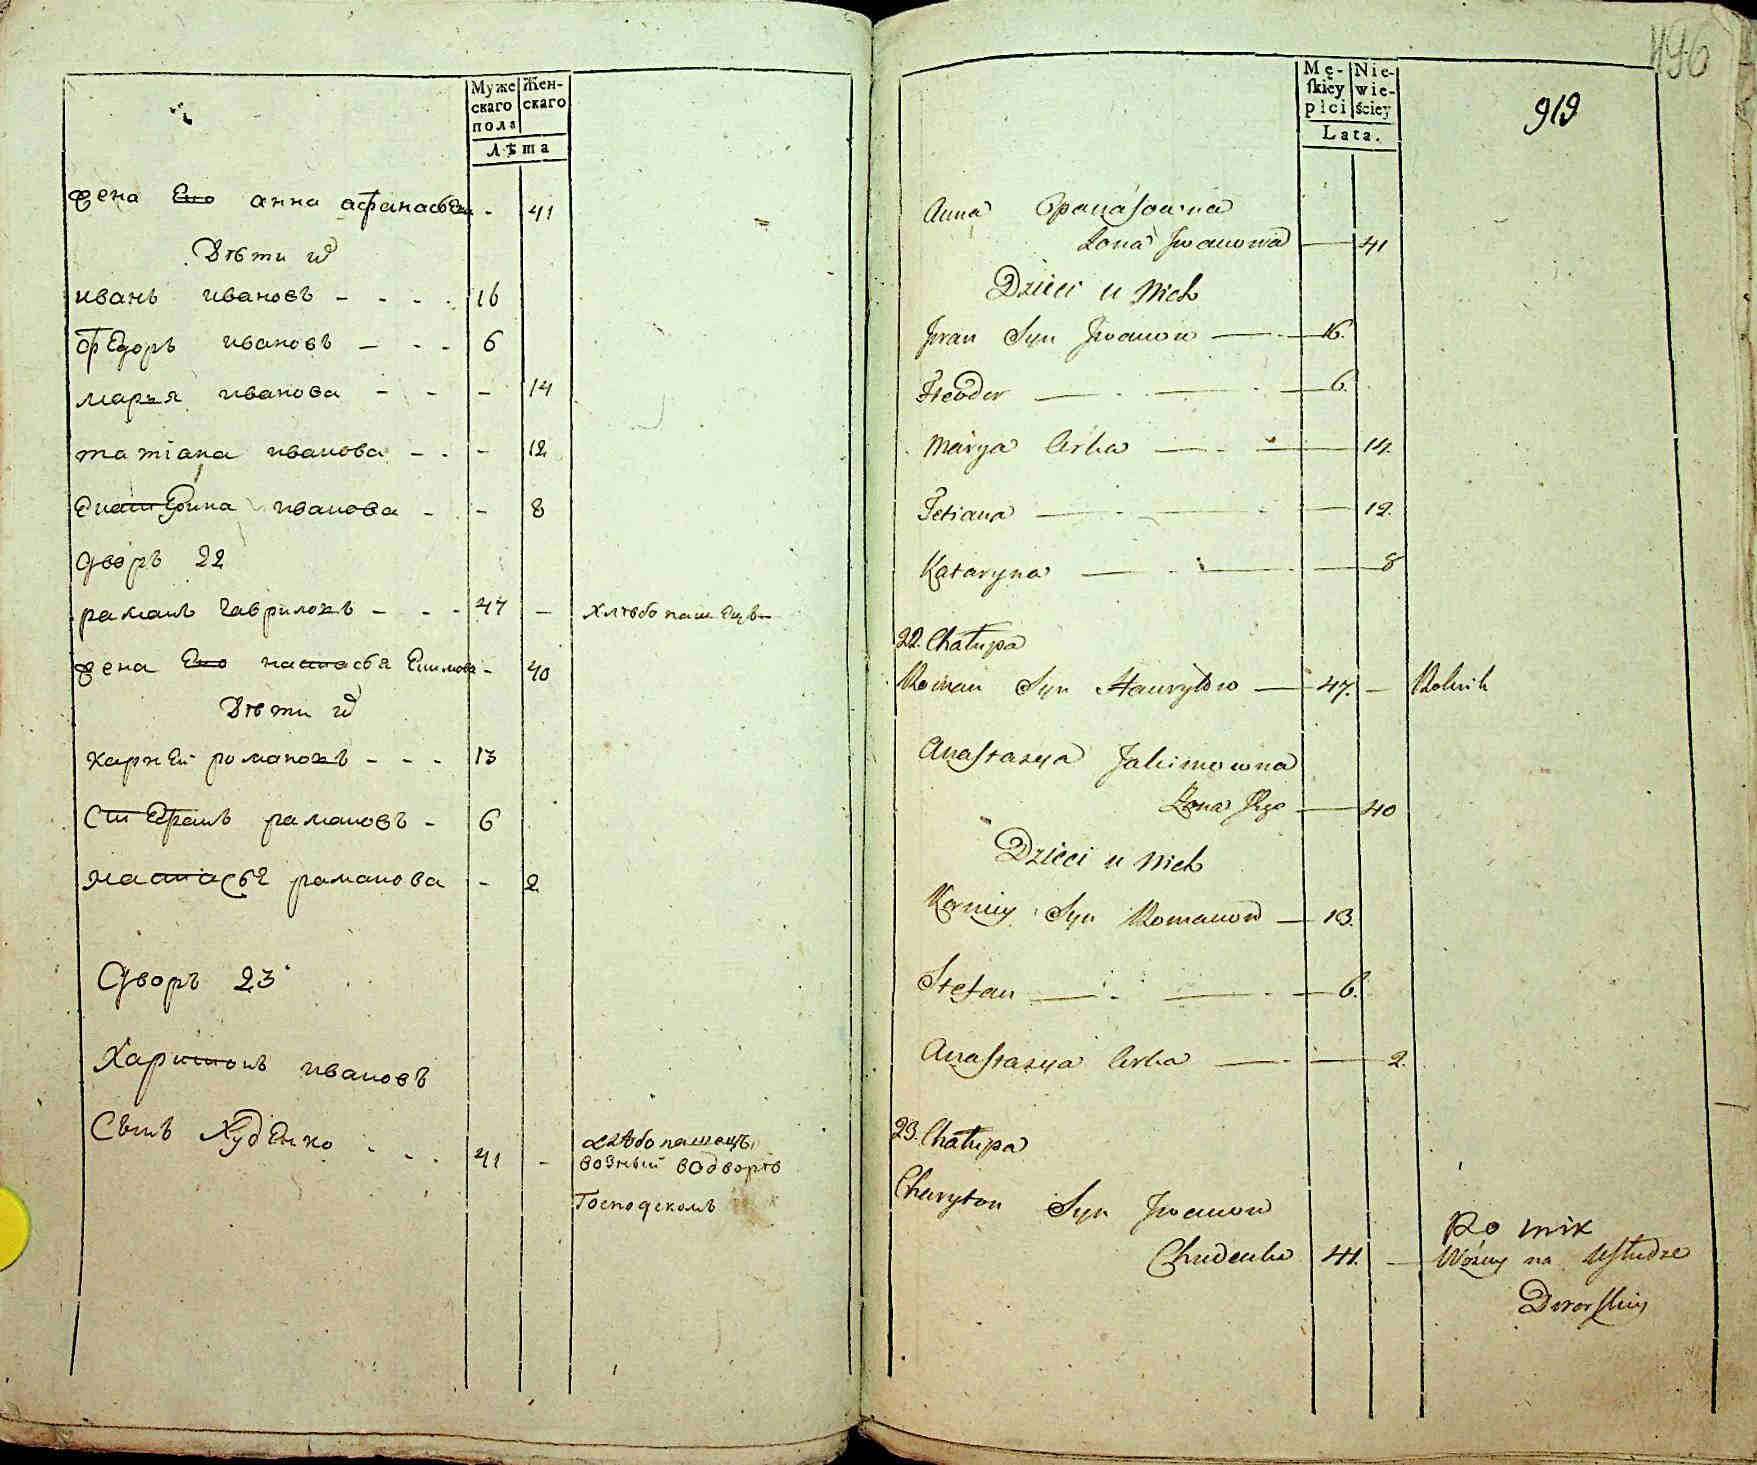 Муже
скаго
пола
Жен-
скаго
Лѣта
жена Его анна афанасьева - 41
Дѣти их
иванъ ивановъ - - - 16
фЕдоръ ивановъ - - - 6
марья иванова - - - 14
татіана иванова - - - 12
Екатерина иванова - - 8
дворъ 22
раманъ гавриловъ - - - 47 - хлѣбопашЕцъ
жена Его настасья Екимова - 40
Дѣти их
карнЕй романовъ - - - 13
СтЕфанъ рамановъ - 6
настасья раманова - 2
Дворъ 23
Харитонъ ивановъ
Сынъ ХудЕнко - - - 41 - хлѣбопашецъ
возный водворѣ
Господскомъ
196
919
Mę-
skiey
płci
Nie-
wie-
ściey
Lata.
Anna Opanasowna
Zona Jwanowa — 41
Dzieci u Nich
Jwan Syn Jwanow — 16.
Fteodor — 6.
Marya Corka — 14.
Tetiana — 12.
Kataryna — 8
22. Chałupa
Roman Syn Hawryłow — 47. — Rolnik
Anastazya Jakimowna
Zona Jego — 40
Dzieci u Nich
Korniey Syn Romanow — 13.
Stefan — 6.
Anastazya Corka — 2.
23. Chałupa
Charyton Syn Jwanow
Chudenko 41. — Rolnik
Woźny na Usłudze
Dworskiey